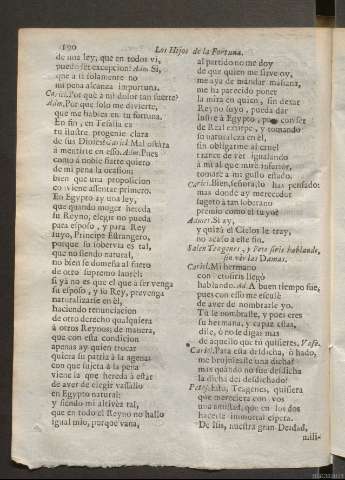 190
Los Hijos de la Fortuna.
de una ley, que en todos vi,
puedo ser excepcion? Adm. Si,
que a ti solamente no
mi pena alcanza importuna.
Cariel. Por què à mi dolor tan fuerte?
Adm. Porque solo me divierte,
que me hables en tu fortuna.
En fin, en Tesalia es
tu ilustre progenie clara
de sus Dioses? Mal osàra
à mentirte en esso. Adm. Pues
como à noble fuerte quiero
de mi pena la ocasion
bien que una proposicion
conviene assentar primero.
En Egypto ay una ley,
que quando muger hereda
su Reyno, elegir no pueda
para esposo, y para Rey
suyo, Principe Estrangero,
porque su sobervia es tal,
que no siendo natural,
no bien se domeña al fuero
de otro supremo laurèl:
si ya no es que el que a ser venga
su esposo, y su Rey, prevenga
naturalizarse en èl,
haciendo renunciacion
de otro derecho qualquiera
à otros Reynos; de manera,
que con esta condicion
apenas ay quien trocar
quiera su patria à la agena:
con que sujeta à la pena
viene la que hereda à estàr
de aver de elegir vasallo
en Egypto natural:
y siendo mi altivèz tal,
que en todo el Reyno no hallo
igual mio, porque vana,
al partido no me doy
de que quien me sirve oy,
me aya de mandar mañana,
me ha parecido poner
la mira en quien, sin dexar
Reyno suyo, pueda dàr
lustre à Egypto, pues con ser
de Real estirpe, y tomando
la naturaleza en èl,
sin obligarme al cruel
trance de ver igualando
à mi al que murò inferior,
tomarè à mi gusto estado.
Cariel. Bien, señora, lo has pensado:
mas donde ay merecedor
sugeto à tan soberano
premio como el tuyo?
Admet. Si ay,
y quizà el Cielo le tray,
no acaso à este fin.
Salen Teagenes, y Petosiris hablando,
sin vèr las Damas.
Cariel. Mi hermano
con Petosiris llegò
hablando. Ad. A buen tiempo fue,
pues con esso me escusè
de aver de nombrarle yo.
Tu le nombraste, y pues eres
su hermana, y capaz estàs,
dile, ò no le digas mas
de aquello que tù quisieres. Vase.
Cariel. Para esta desdicha, ò hado,
me brujuleaste una dicha?
mas quando no fue desdicha
la dicha del desdichado?
Petos. Esta, Teagenes, quisiera
que mereciera con vos
una amistad, que en los dos
hacerla immortal espera.
De Isis, nuestra gran Deidad,